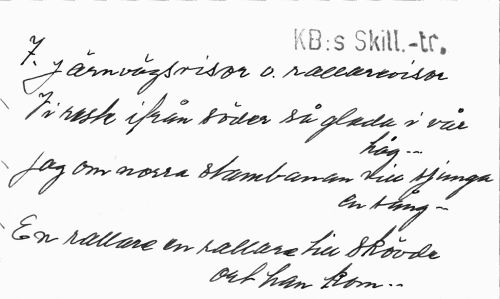 KB:s Skill.-tr.
7. Järnvägsvisor o. rallarevisor
Vi reste ifrån söder så glada i vår
håg --
Jag om norra stambanan vill sjunga
en sång --
En rallare en rallare till Skövde
ort han kom --